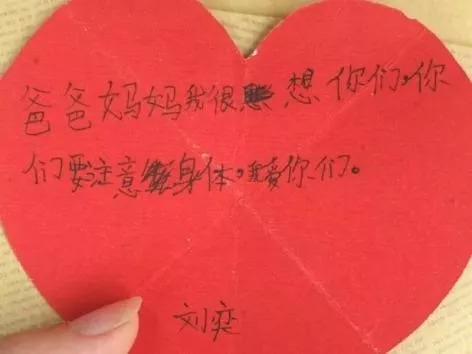 爸爸妈妈我很想你们。你
们要注意身体。我爱你们。
刘奕